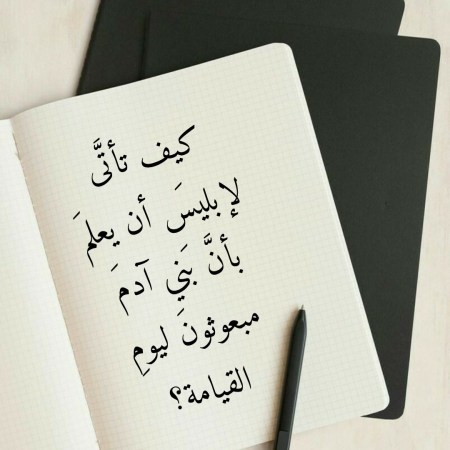 كيف تأتَّى
لإبليسَ أن يعلمَ
بأنَّ بَنِي آدمَ
مبعوثونَ ليومِ
القيامة؟